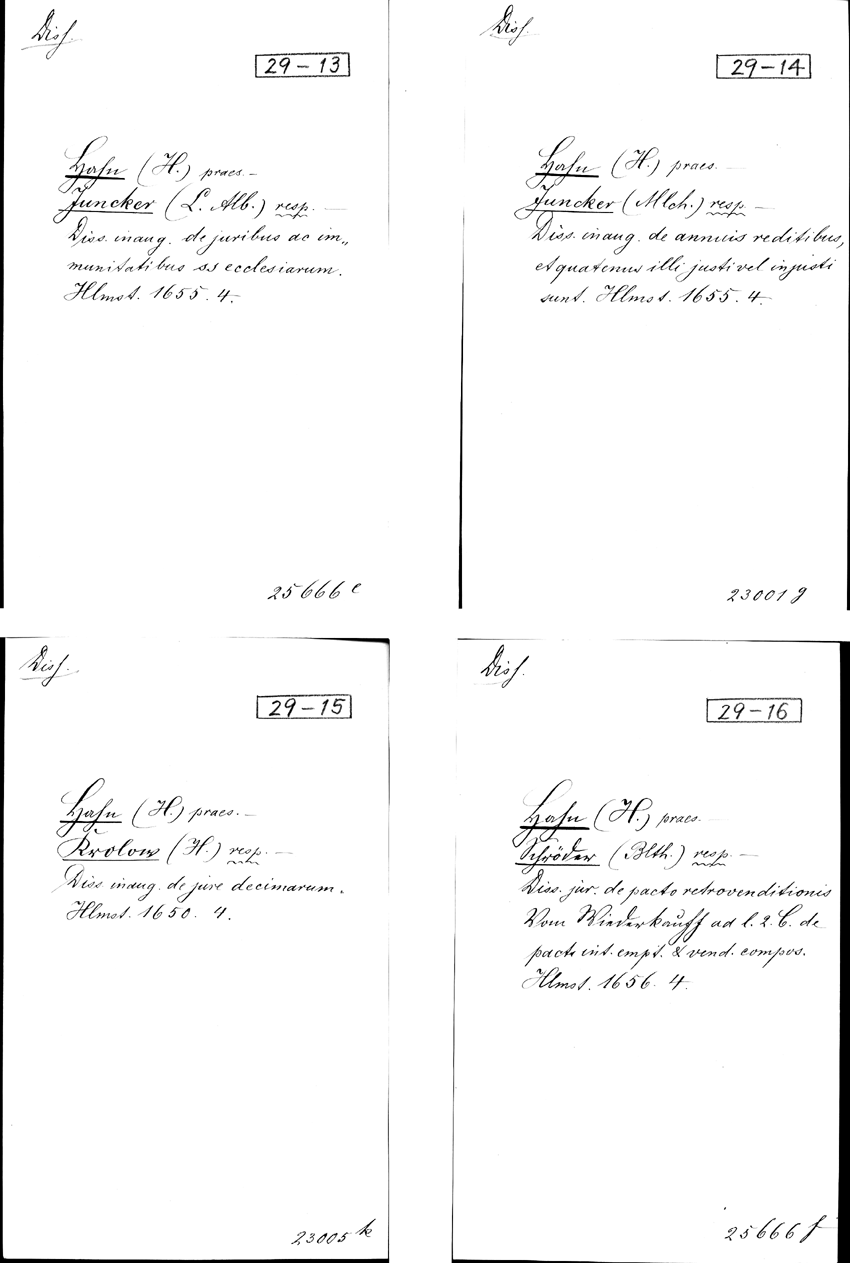 Diss.
29-13
Hahn (H.) praes. —
Juncker (L. Alb.) resp. —
Diss. inaug. de juribus ac im„
munitatibus ss ecclesiarum.
Hlmst. 1655. 4.
25666 e
Diss.
29-14
Hahn (H.) praes. —
Juncker (Mlch.) resp. —
Diss. inaug. de annuis reditibus,
et quatenus illi justi vel injusti
sunt. Hlmst. 1655. 4.
23001 g
Diss.
29-15
Hahn (H.) praes. —
Krolow (H.) resp. —
Diss. inaug. de jure decimarum.
Hlmst. 1650. 4.
23005 k
Diss.
29-16
Hahn (H.) praes. —
Schröder (Blth.) resp. —
Diss. jur. de pacto retrovenditionis
Vom Wiederkauff ad l. 2. C. de
pactis int. empt. & vend. compos.
Hlmst. 1656. 4.
25666 f